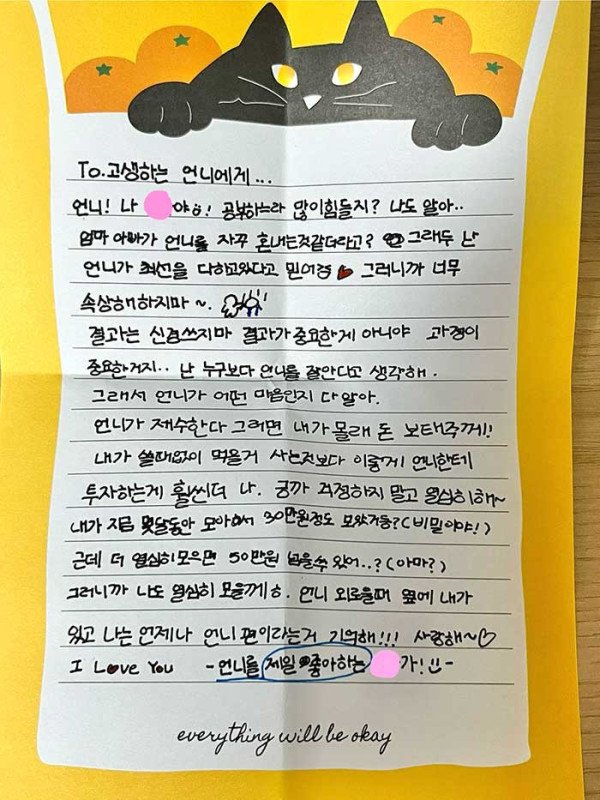 To.고생하는 언니에게...
언니! 나 야! 공부하느라 많이힘들지? 나도 알아..
엄마 아빠가 언니를 자꾸 혼내는것같더라고? 그래두 난
언니가 최선을 다하고있다고 믿어 그러니까 너무
속상해하지마~.
결과는 신경쓰지마 결과가 중요한게 아니야 과정이
중요한거지.. 난 누구보다 언니를 잘안다고 생각해.
그래서 언니가 어떤 마음인지 다 알아.
언니가 재수한다 그러면 내가 몰래 돈 보태주께!
내가 쓸때없이 먹을거 사는것보다 이렇게 언니한테
투자하는게 훨씬더 나. 긍까 걱정하지 말고 열심히해~
내가 지금 몇달동안 모아서 30만원정도 모았거등?(비밀이야!)
근데 더 열심히모으면 50만원 넘을수 있어..?(아마?)
그러니까 나도 열심히 모을께ㅎ. 언니 외로울때 옆에 내가
있고 나는 언제나 언니 편이라는거 기억해!!! 사랑해~♡
I Love You -언니를 제일 좋아하는 가!-
everything will be okay